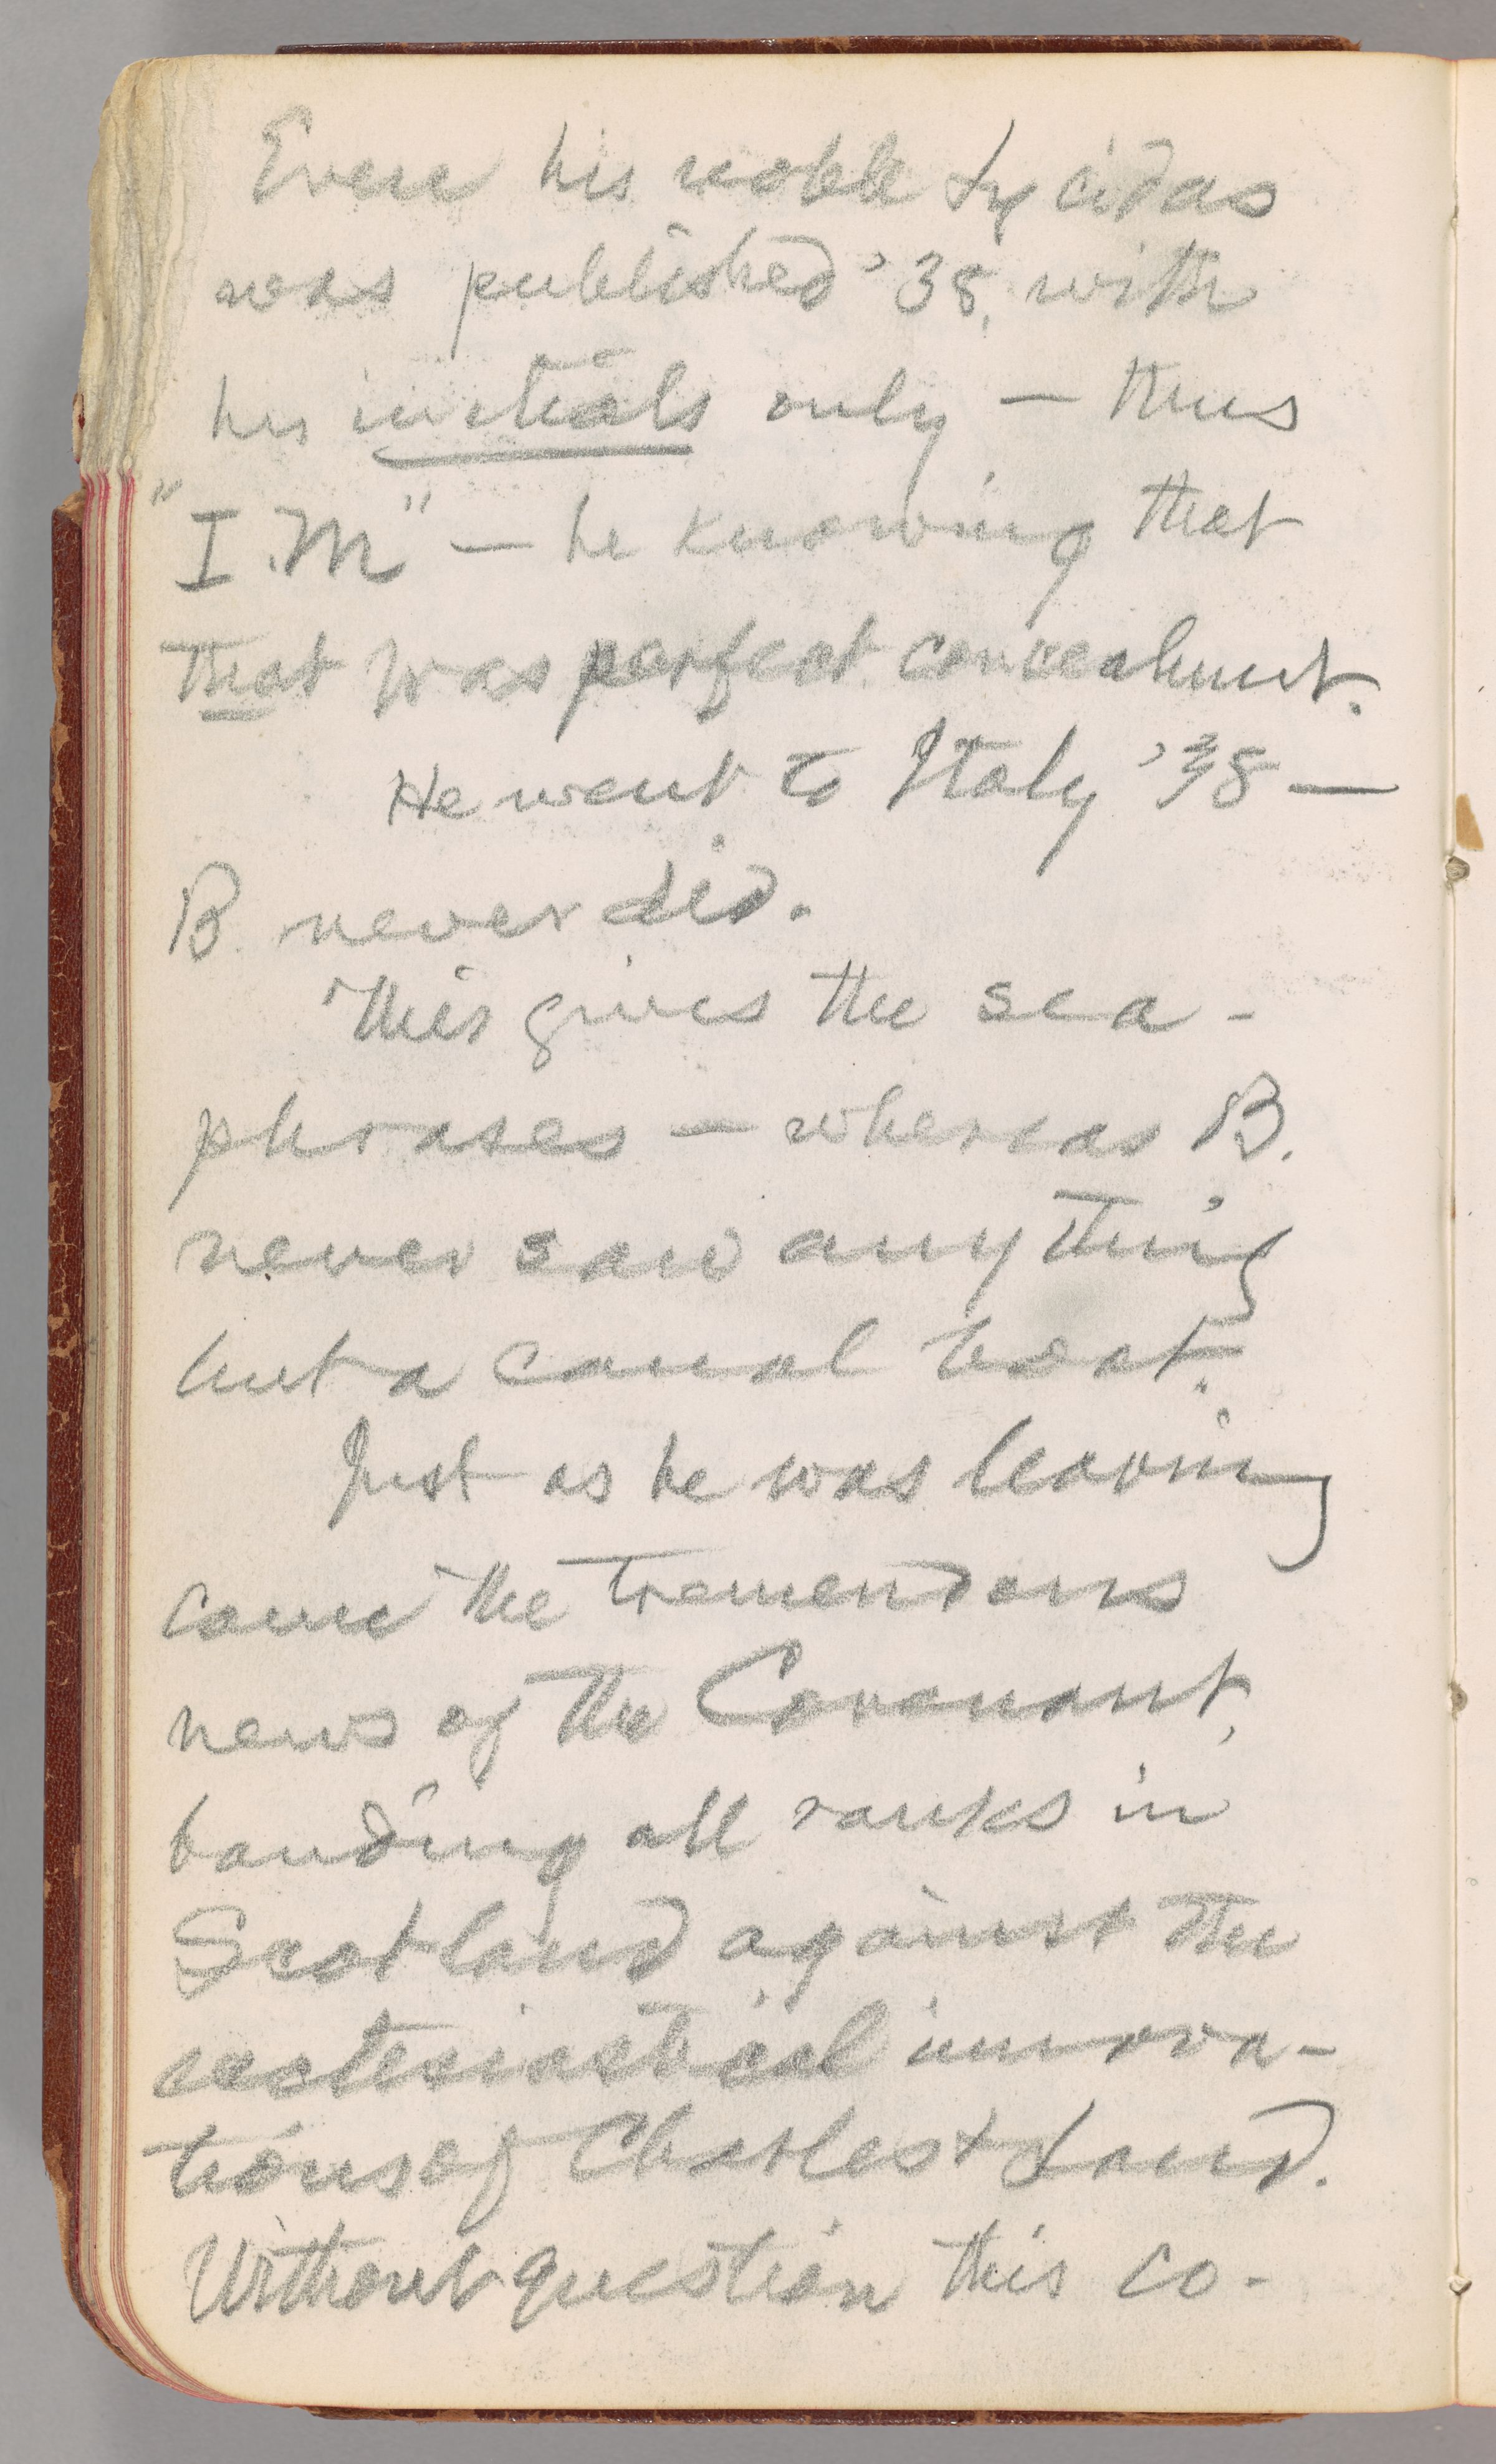 Even his noble Lycidas
was published '38, with
his initials only — thus
"I.M" — he knowing that
that was perfect concealment.
He went to Italy '38 —
B. never did.
This gives the sea-
phrases — whereas B.
never saw anything
but a canal boat.
Just as he was leaving
came the tremendous
news of the Covenant,
banding all ranks in
Scotland against the
ecclesiastical innova-
tions of Charles & Laud.
Without question this co-